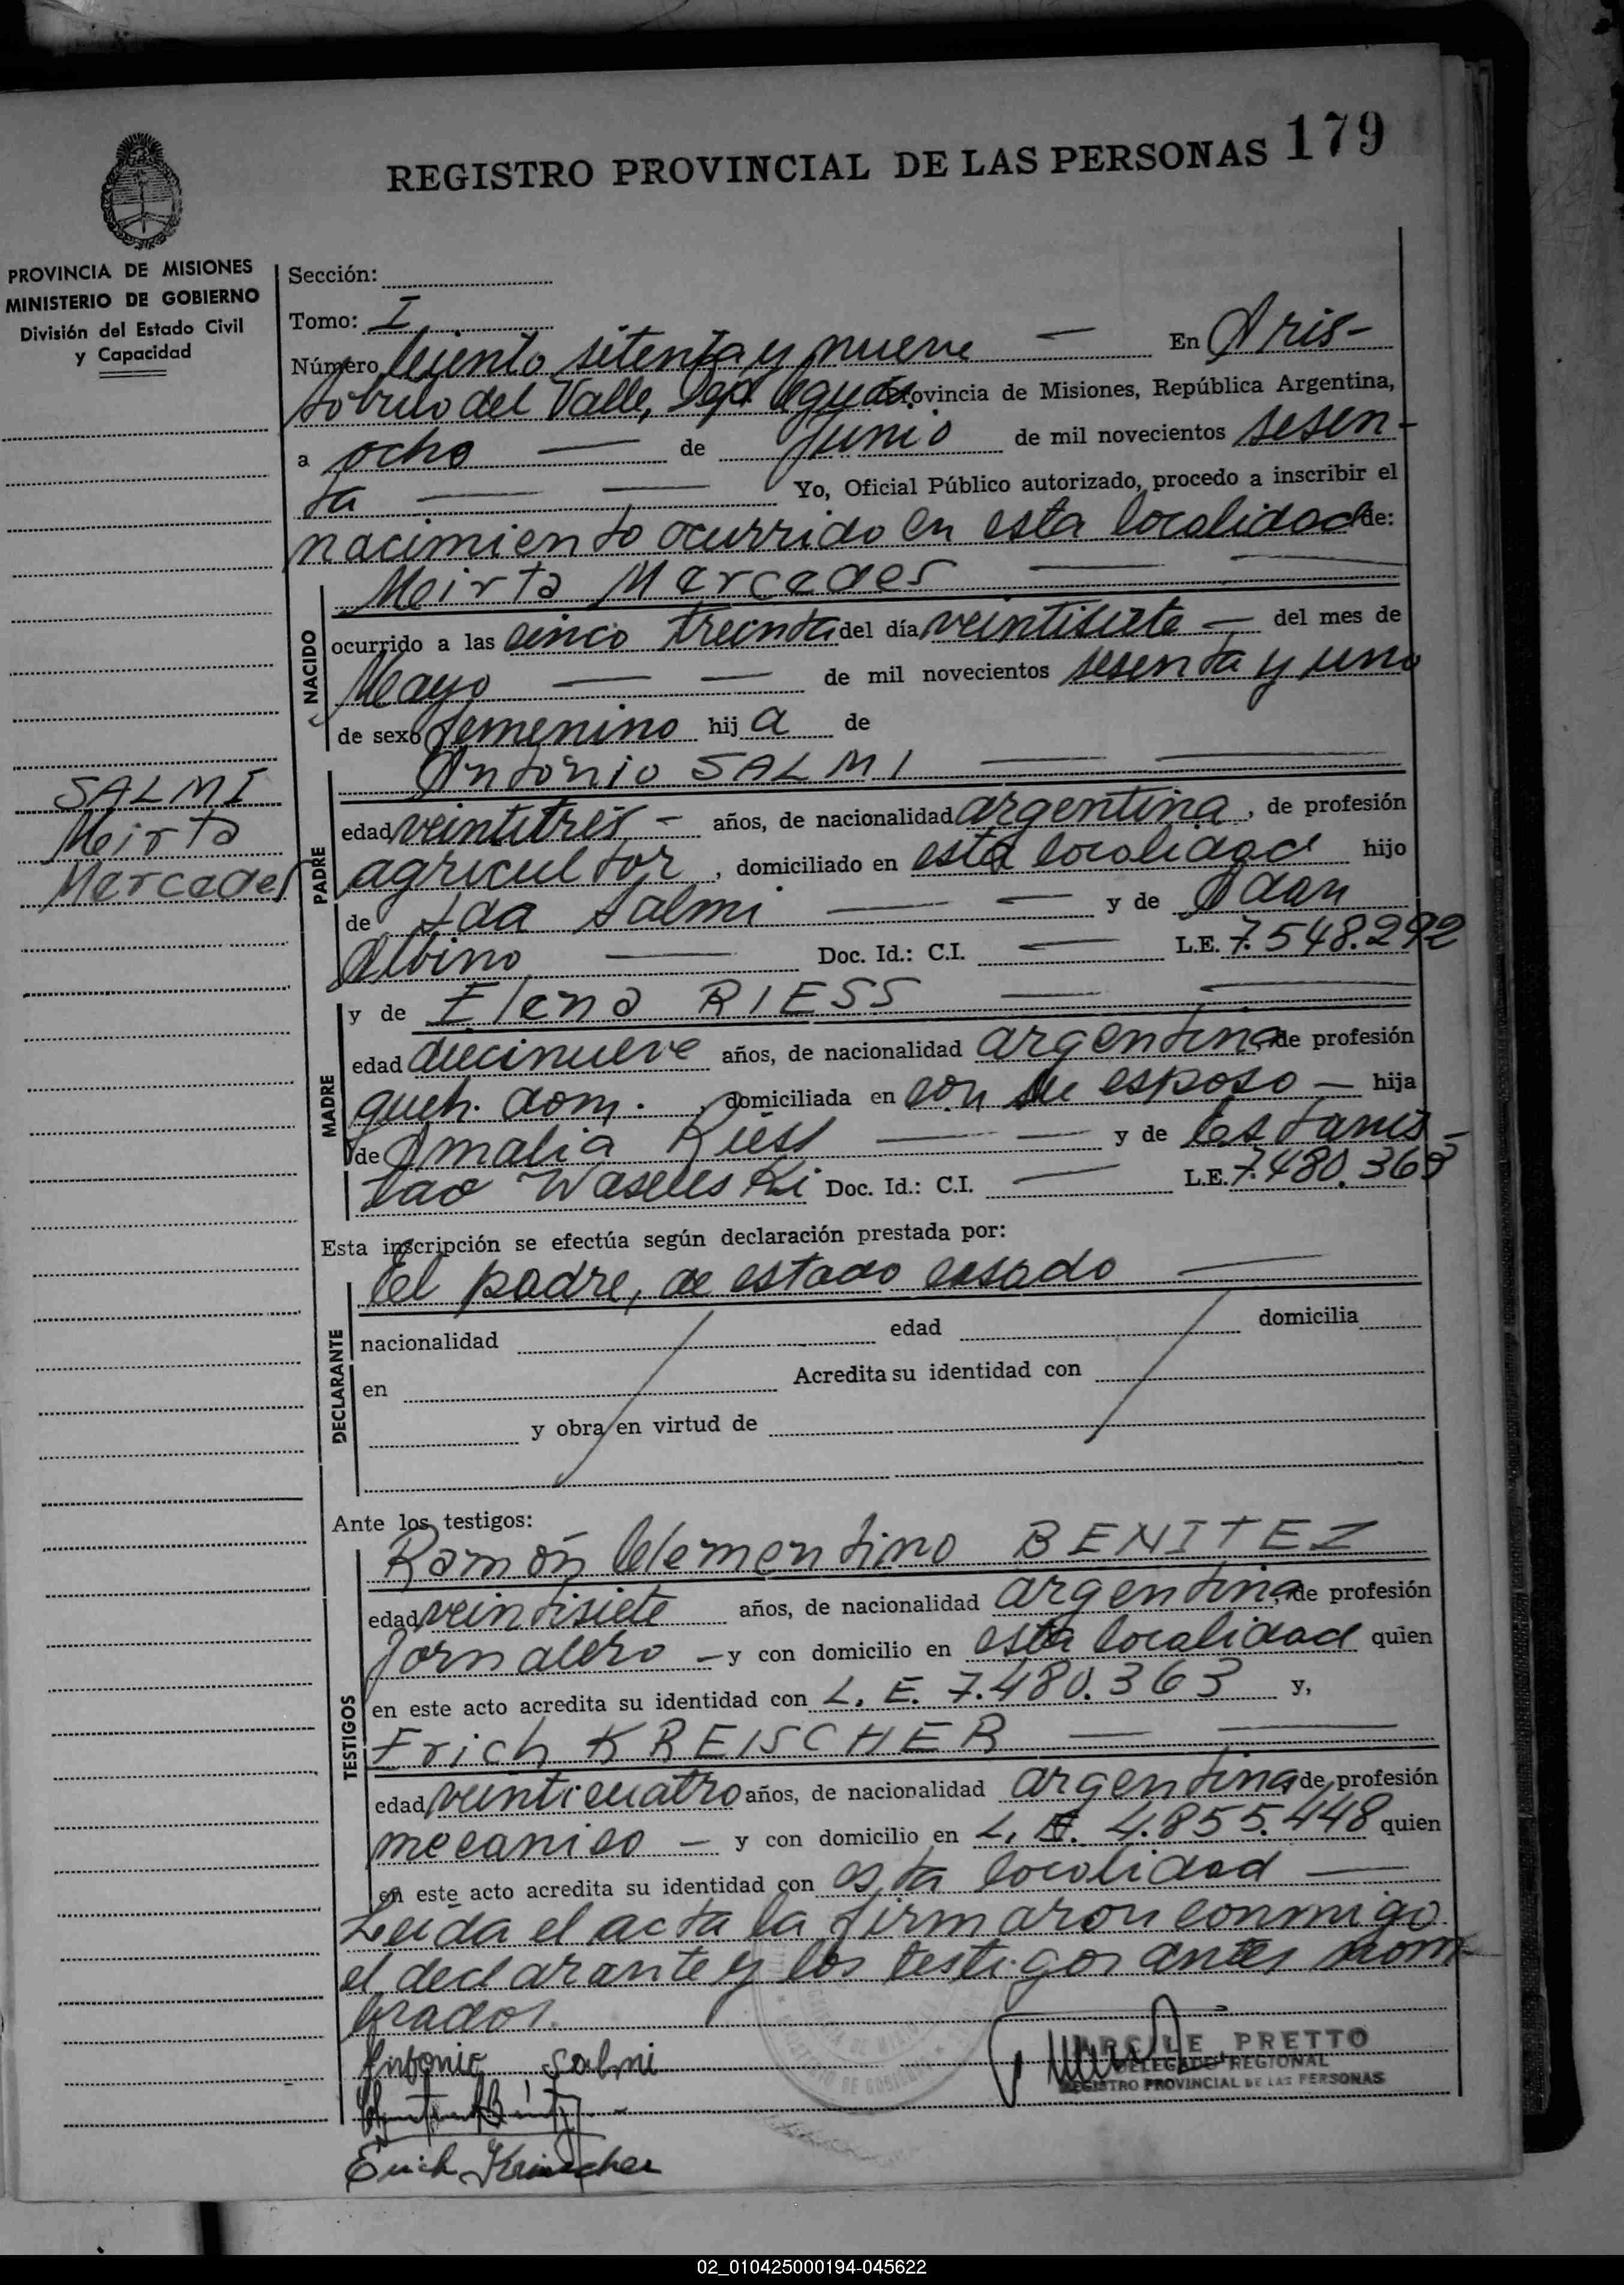 REGISTRO PROVINCIAL DE LAS PERSONAS 179
PROVINCIA DE MISIONES
MINISTERIO DE GOBIERNO
División del Estado Civil
y Capacidad
Sección:
Tomo: I
Número Ciento setenta y nueve — En Aris-
tóbulo del Valle, Provincia de Misiones, República Argentina,
a ocho — de Junio de mil novecientos sesen-
ta — — Yo, Oficial Público autorizado, procedo a inscribir el
nacimiento ocurrido en esta localidad de:
NACIDO
Meirta Mercedes — —
ocurrido a las cinco treinta del día veintisiete — del mes de
Mayo — — de mil novecientos sesenta y uno
de sexo femenino hij a de
SALMI
Meirta
Mercedes
PADRE
Antonio SALMI — —
edad veintitres — años, de nacionalidad argentina, de profesión
agricultor, domiciliado en esta localidad hijo
de Ida Salmi — — y de Adan
Albino — Doc. Id.: C.I. — L.E. 7.548.292
MADRE
y de Elena RIESS — —
edad diecinueve años, de nacionalidad argentina de profesión
queh. dom., domiciliada en con su esposo — hija
de Amalia Riess — — y de Estanis-
lao Doc. Id.: C.I. — L.E. 7.480.363
Esta inscripción se efectúa según declaración prestada por:
DECLARANTE
El padre, de estado casado —
nacionalidad edad domicilia
en Acredita su identidad con
y obra en virtud de
Ante los testigos:
TESTIGOS
Ramón Clementino BENITEZ
edad veintisiete años, de nacionalidad argentina, de profesión
Jornalero — y con domicilio en esta localidad quien
en este acto acredita su identidad con L. E. 7.480.363 y,
Erich KREISCHER — —
edad veinticuatro años, de nacionalidad argentina de profesión
mecanico — y con domicilio en L. E. 4.855.448 quien
en este acto acredita su identidad con esta localidad —
Leida el acta la firmaron conmigo
el declarante y los testigos antes nom-
brados.
Antonio Salmi
PRETTO
DELEGADO REGIONAL
REGISTRO PROVINCIAL DE LAS PERSONAS
Erich Kreischer
02_010425000194-045622